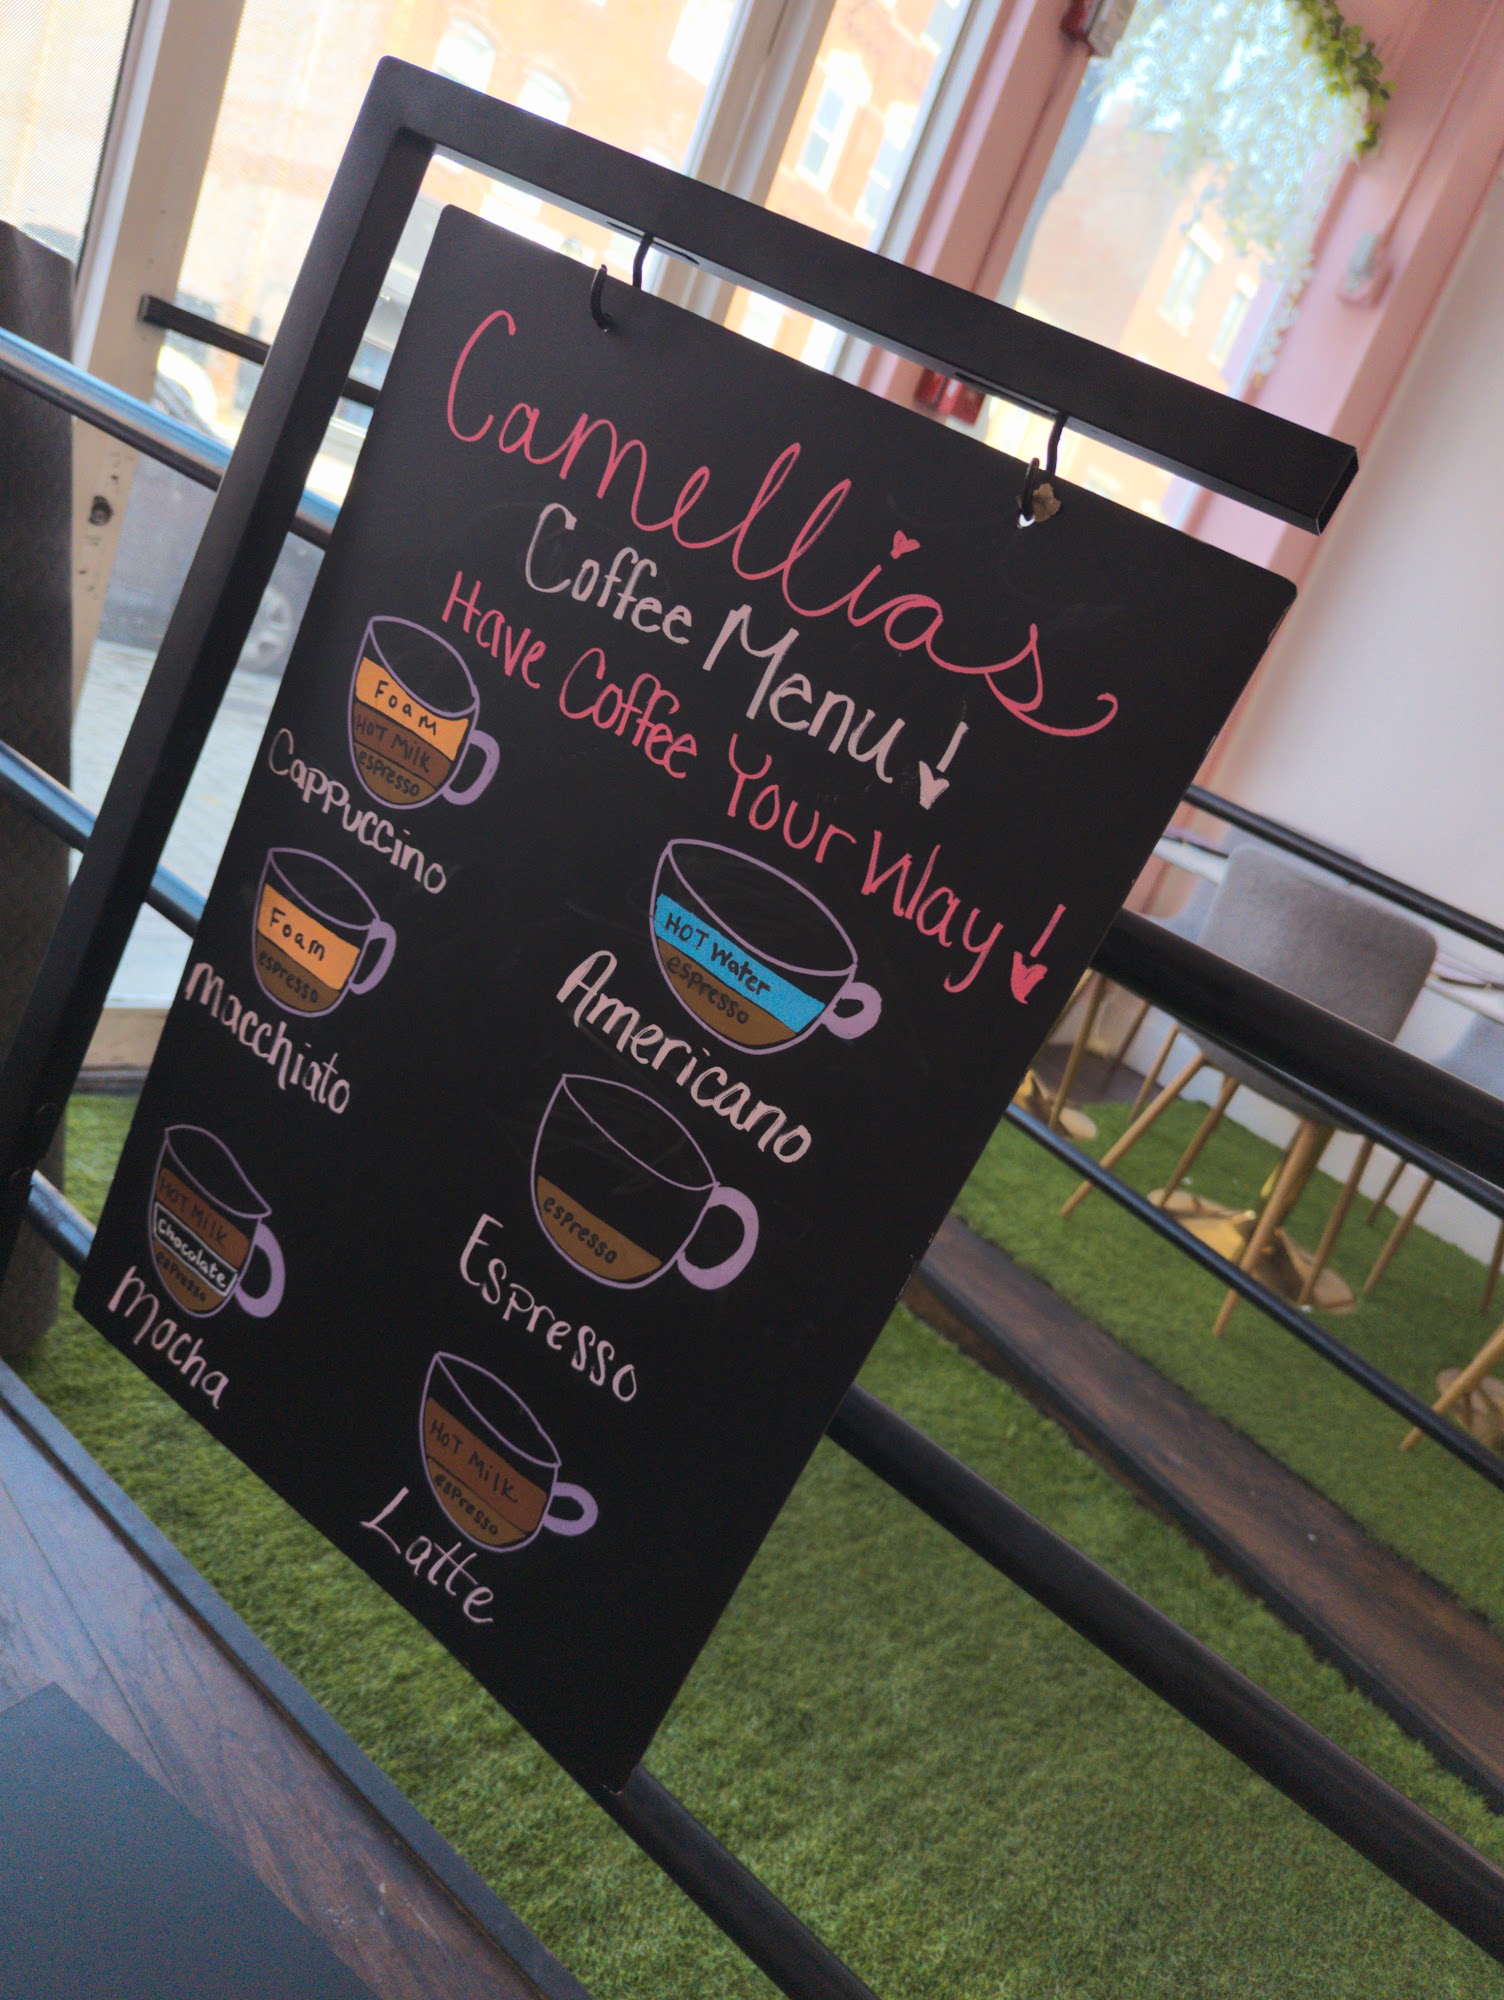 Camellias
Coffee Menu!
Have Coffee Your Way!
Foam
HOT Milk
espresso
Cappuccino
HOT Water
espresso
Americano
Foam
espresso
Macchiato
espresso
Espresso
HOT Milk
Chocolate
espresso
Mocha
HOT Milk
espresso
Latte